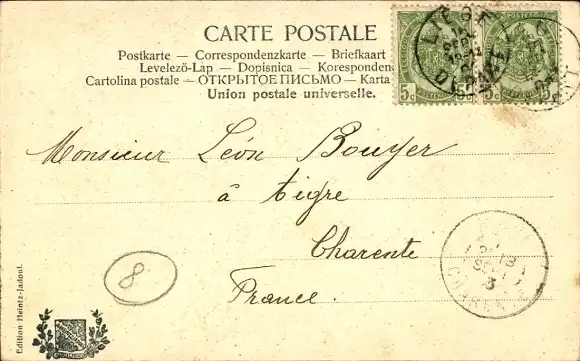 CARTE POSTALE
Postkarte — Correspondenzkarte — Briefkaart
Levelezö-Lap — Dopisnica — Koresponden
Cartolina postale — ОТКРЫТОЕ ПИСЬМО — Karta
Union postale universelle.
5c 5c 5c
LIÉGE
DÉPART
Monsieur Léon Bouyer
à Aigre
Charente
France.
8
13
SEPT
CHARENTE
Edition Heintz-Jadoul.